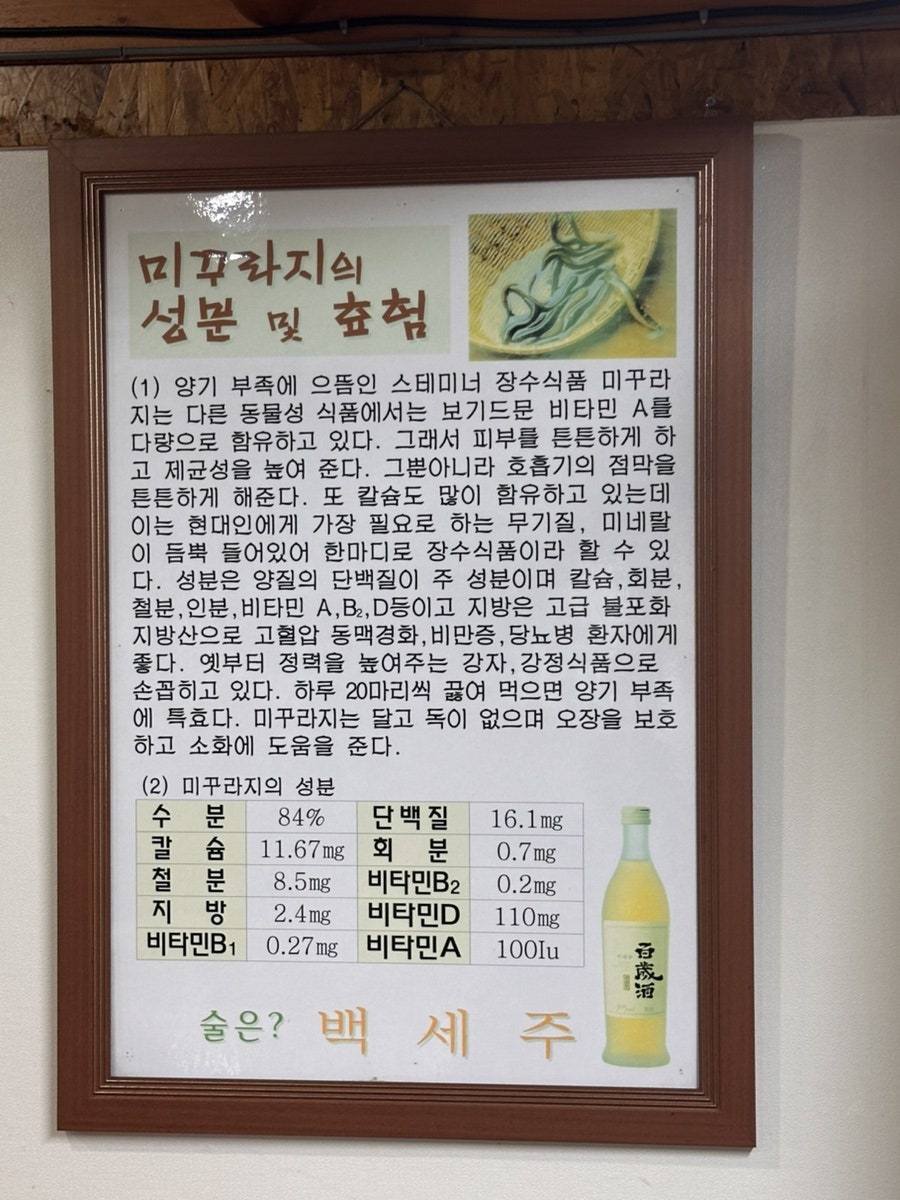 미꾸라지의
성분 및 효험
(1) 양기 부족에 으뜸인 스테미너 장수식품 미꾸라
지는 다른 동물성 식품에서는 보기드문 비타민 A를
다량으로 함유하고 있다. 그래서 피부를 튼튼하게 하
고 제균성을 높여 준다. 그뿐아니라 호흡기의 점막을
튼튼하게 해준다. 또 칼슘도 많이 함유하고 있는데
이는 현대인에게 가장 필요로 하는 무기질, 미네랄
이 듬뿍 들어있어 한마디로 장수식품이라 할 수 있
다. 성분은 양질의 단백질이 주 성분이며 칼슘,회분,
철분,인분,비타민 A,B₂,D등이고 지방은 고급 불포화
지방산으로 고혈압 동맥경화,비만증,당뇨병 환자에게
좋다. 옛부터 정력을 높여주는 강자,강정식품으로
손꼽히고 있다. 하루 20마리씩 끓여 먹으면 양기 부족
에 특효다. 미꾸라지는 달고 독이 없으며 오장을 보호
하고 소화에 도움을 준다.
(2) 미꾸라지의 성분
수 분 84% 단백질 16.1mg
칼 슘 11.67mg 회 분 0.7mg
철 분 8.5mg 비타민B₂ 0.2mg
지 방 2.4mg 비타민D 110mg
비타민B₁ 0.27mg 비타민A 100Iu
百歲酒
술은? 백 세 주